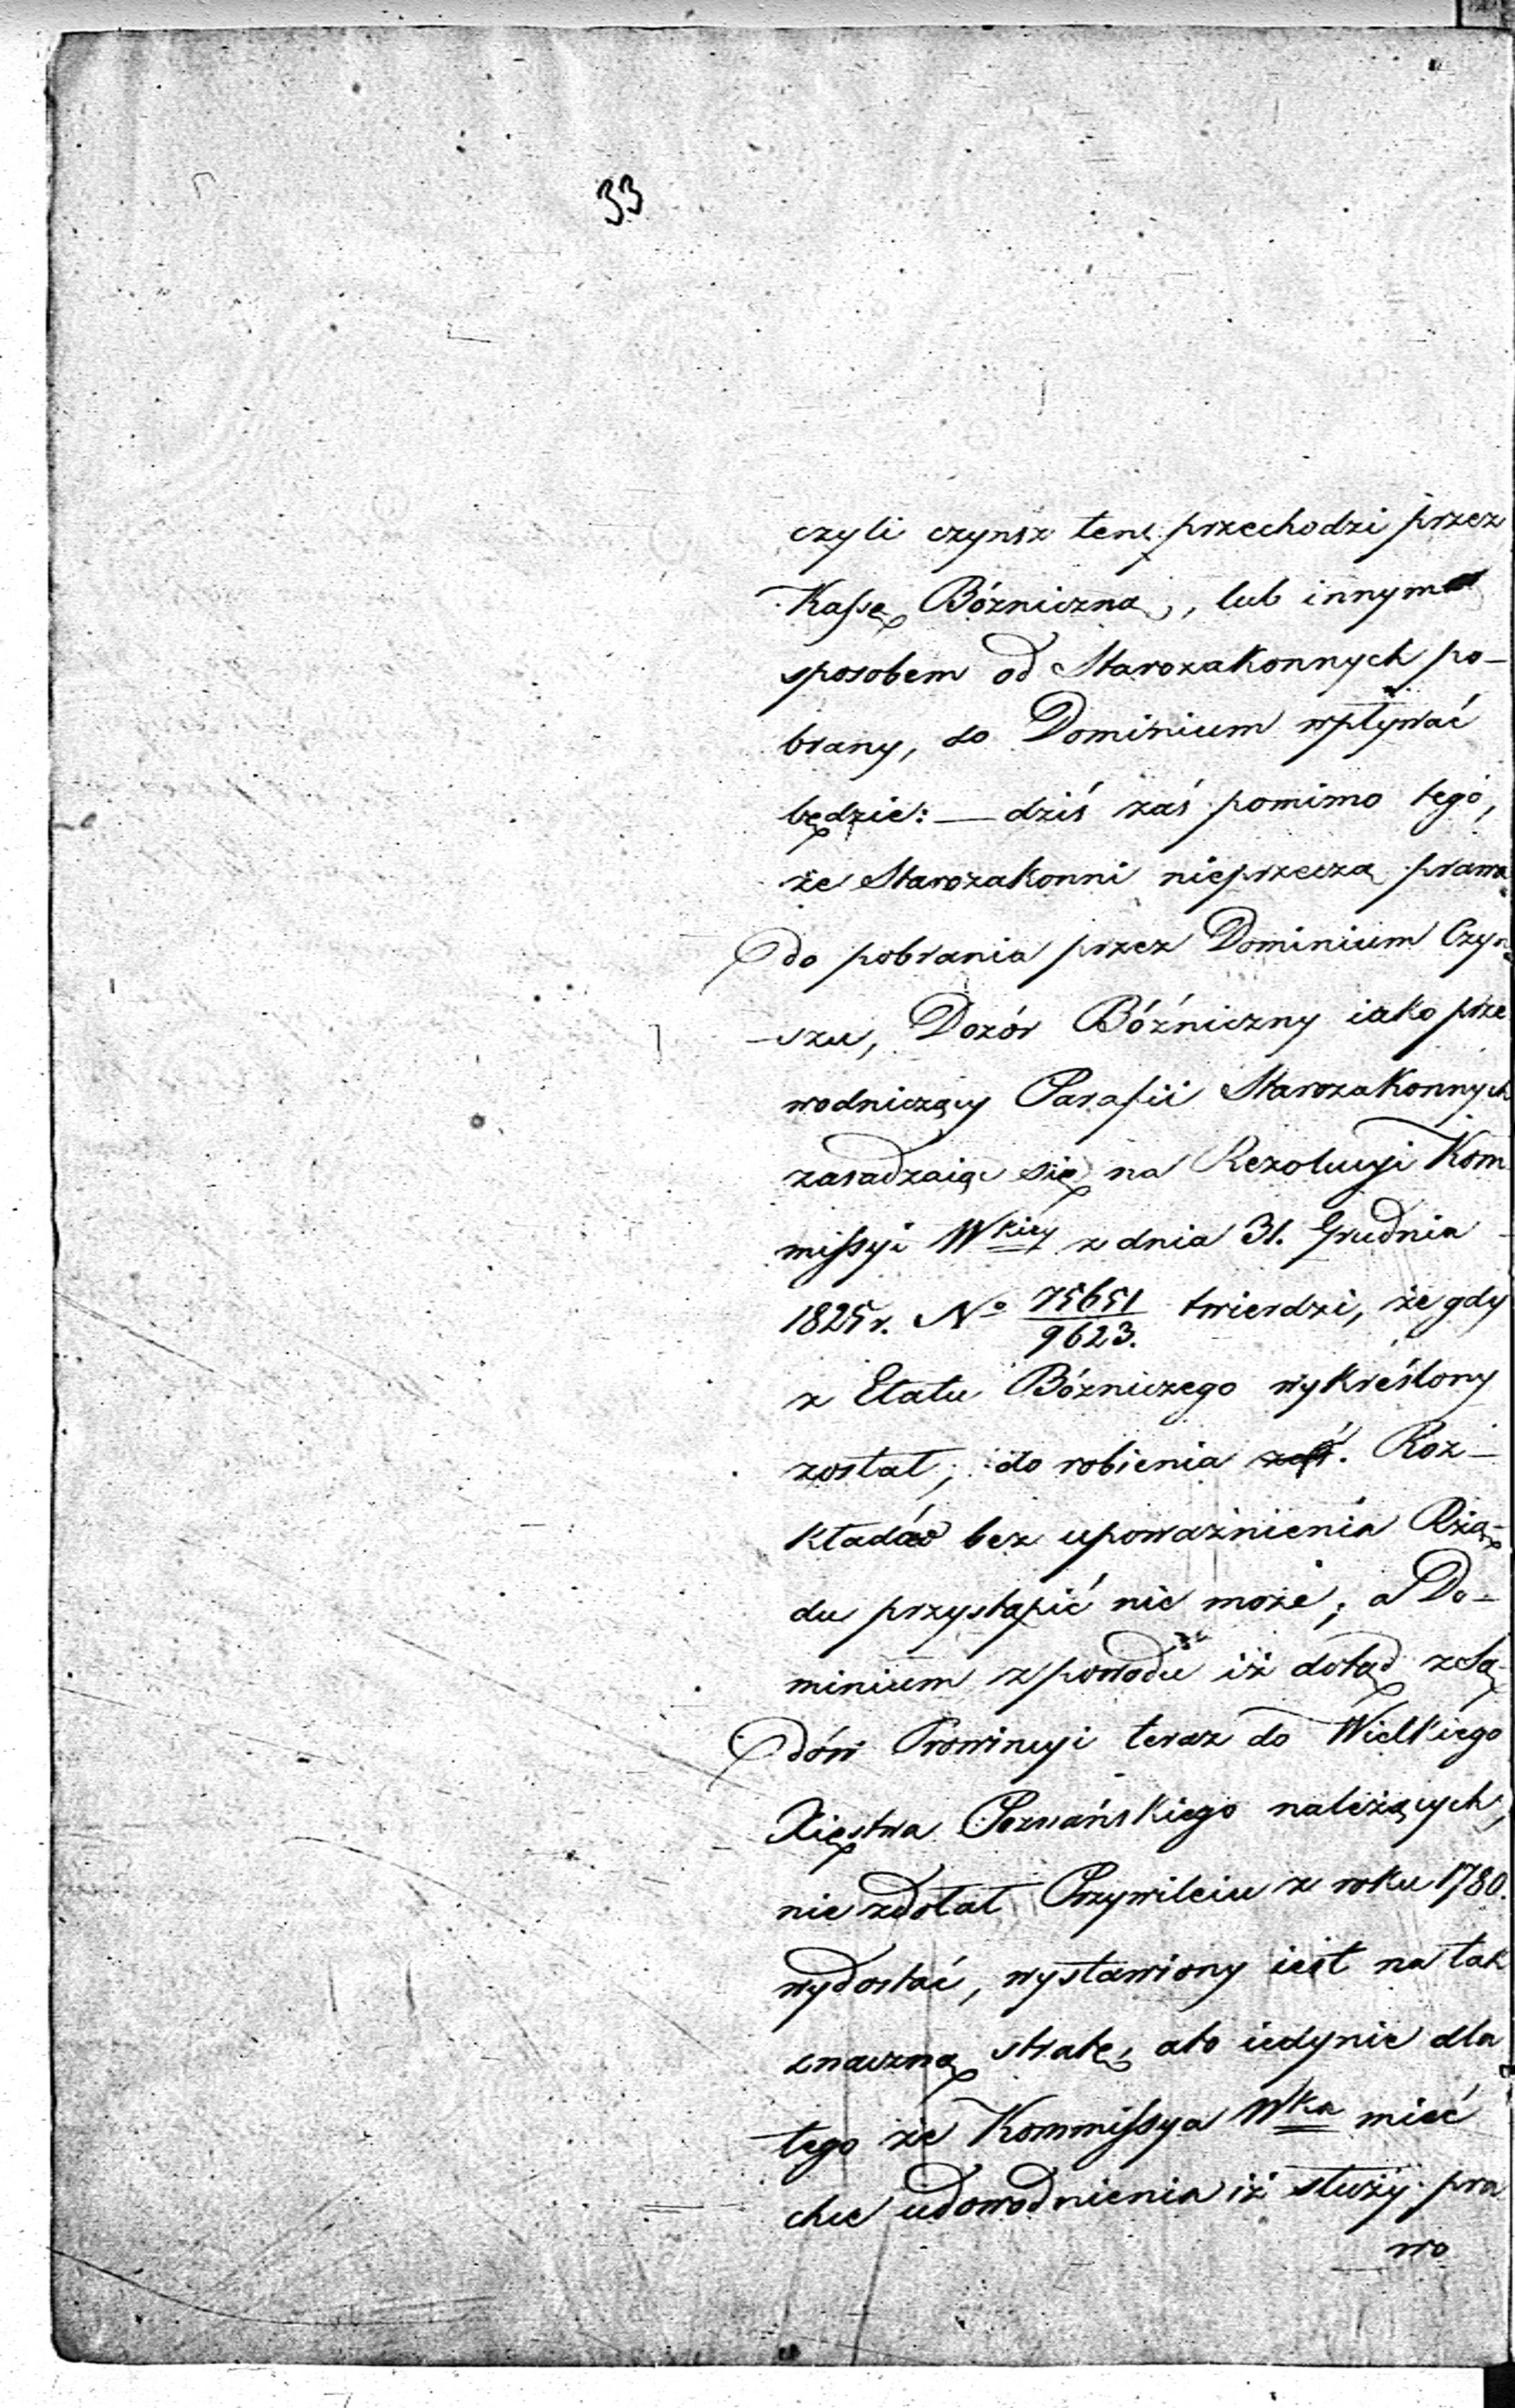 33
czyli czynsz ten przechodzi przez
Kassę Bózniczną, lub innym
sposobem od Starozakonnych po-
brany, do Dominium wpływać
będzie: — dziś zaś pomimo tego,
że Starozakonni nieprzeczą prawa
do pobrania przez Dominium Czyn
-szu, Dozór Bóźniczny iako prze
wodniczący Parafii Starozakonnych
zasadzaiąc się na Rezolucyi Kom
missyi Wkiey z dnia 31. Grudnia
1825 r. No 75651/9623. twierdzi, że gdy
z Etatu Bózniczego wykreślony
został; do robienia zaś. Roz-
kładów bez upoważnienia Rzą-
du przystąpić nie może; a Do-
minium z powodu iż dotąd z Są-
dów Prowincyi teraz do Wielkiego
Xięstwa Poznańskiego należących,
nie zdołał Przywileiu z roku 1780.
wydostać, wystawiony iest na tak
znaczną stratę, ato iedynie dla
tego że Kommissya Wka mieć
chce udowodnienia iż służy pra
wo